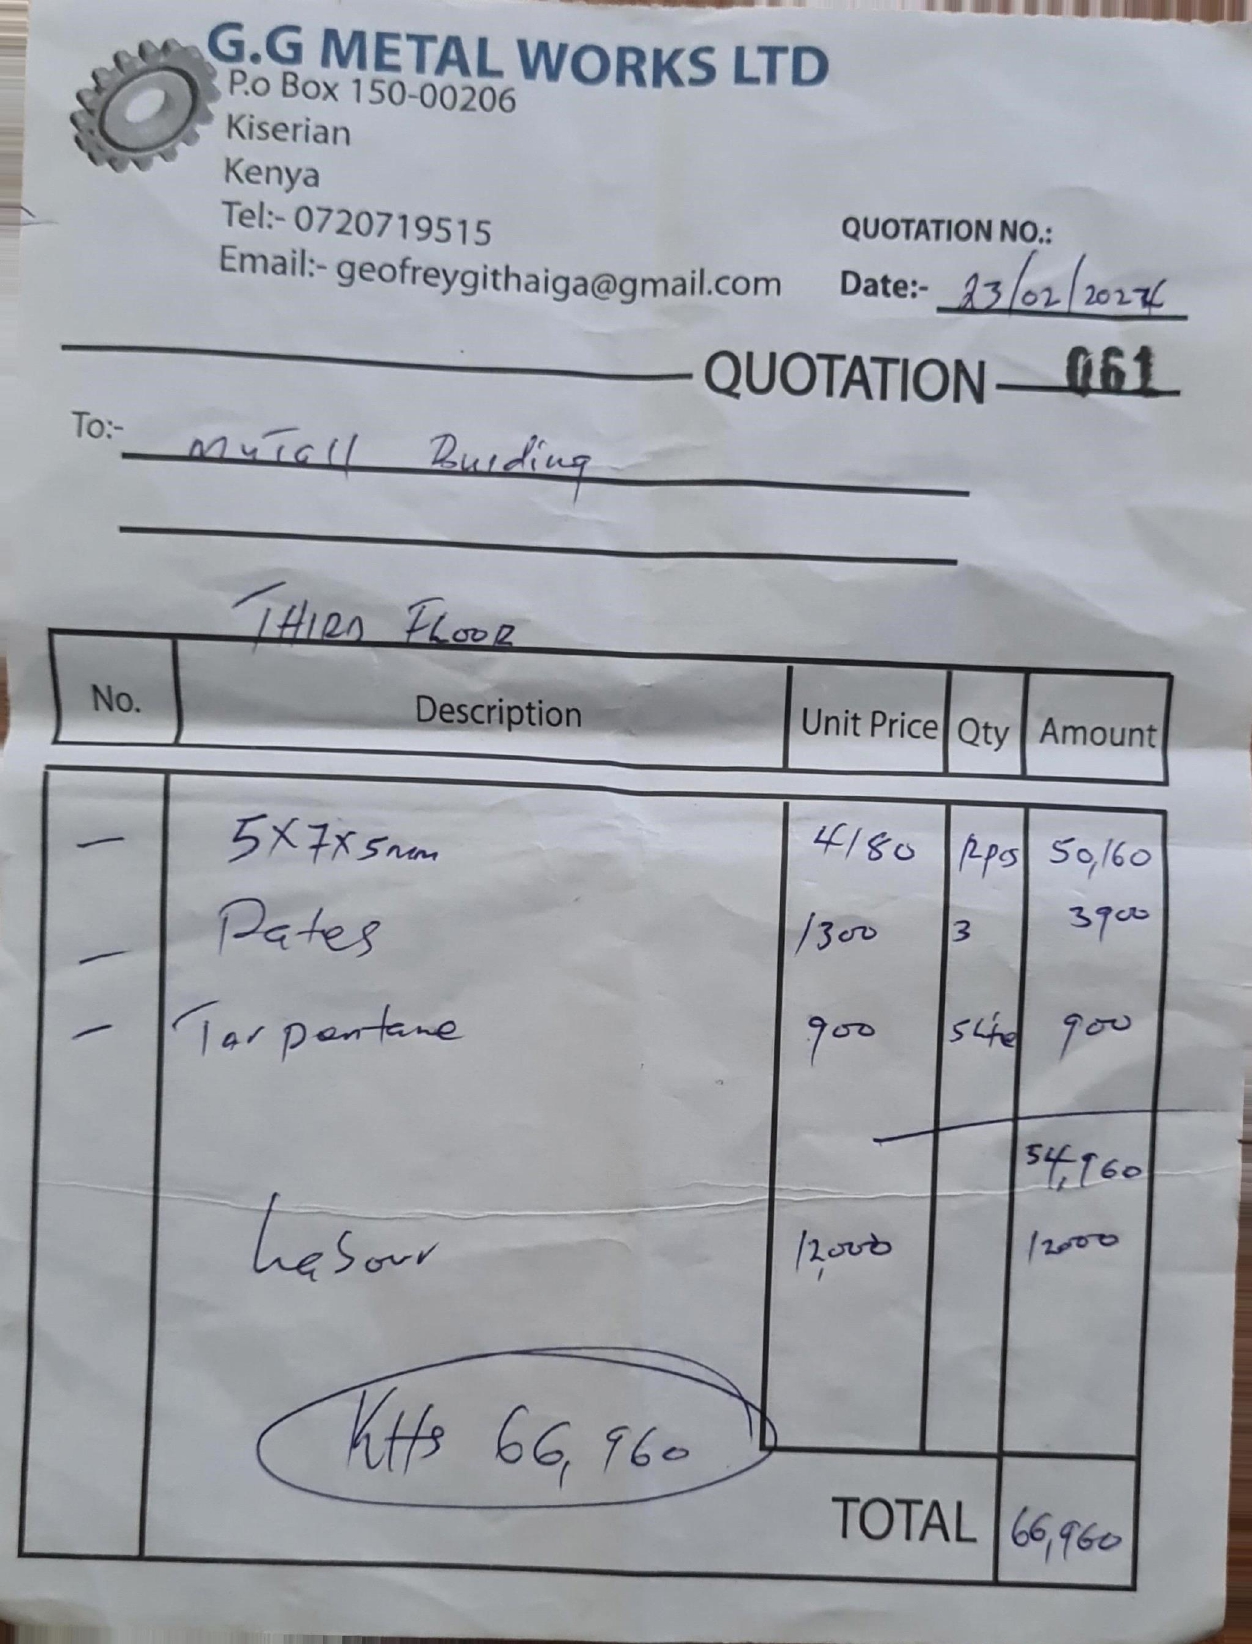 G.G METAL WORKS LTD
P.o Box 150-00206
Kiserian
Kenya
Tel:- 0720719515
Email:- geofreygithaiga@gmail.com
QUOTATION NO.:
Date:- 23/02/2024
QUOTATION 061
To:- Mutall Building
THIRD FLOOR
No. Description Unit Price Qty Amount
- 5X7X5mm 4180 12pcs 50,160
- Pates 1300 3 3900
- Tarpentane 900 5Lte 900
54,960
Labour 12,000 12000
KHs 66,960
TOTAL 66,960